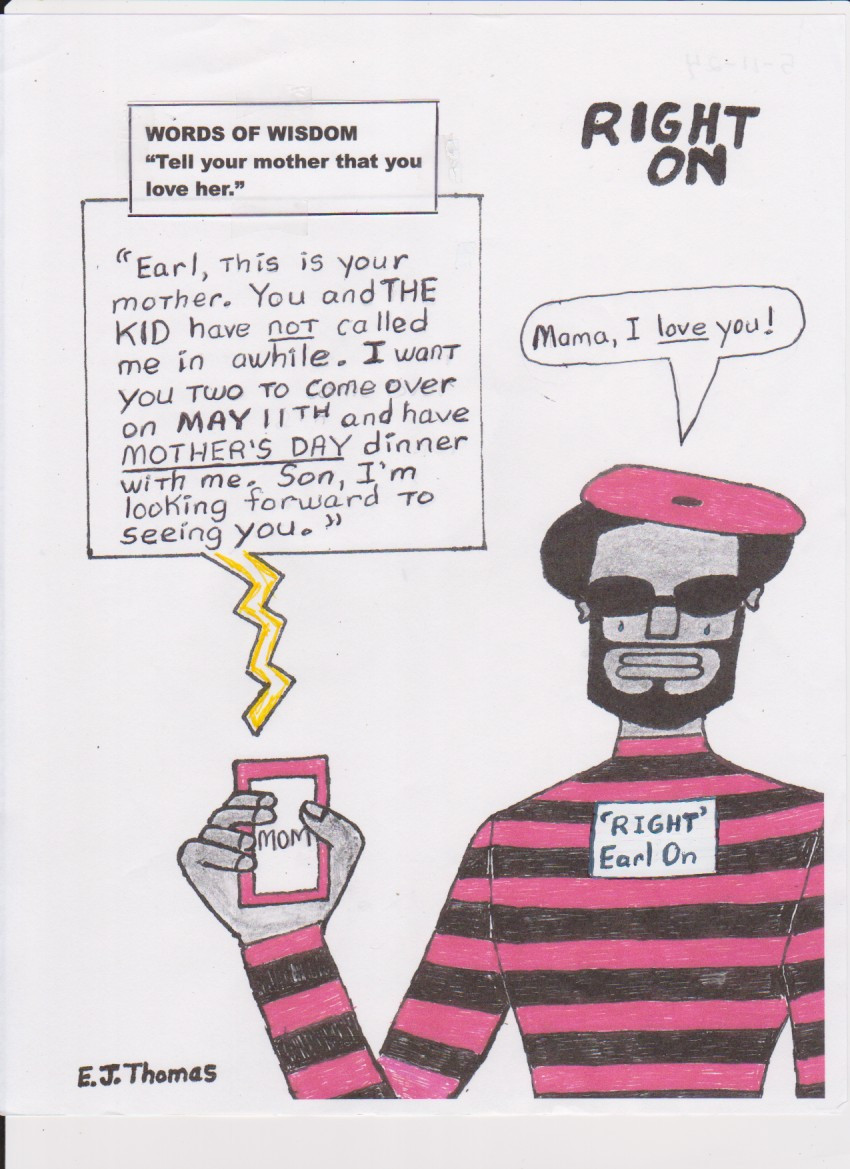 WORDS OF WISDOM
“Tell your mother that you
love her.”
RIGHT
ON
“Earl, This is your
mother. You and THE
KID have not called
me in awhile. I want
you two to come over
on MAY 11TH and have
MOTHER'S DAY dinner
with me. Son, I'm
looking forward to
seeing you.”
Mama, I love you!
MOM
‘RIGHT’
Earl On
E.J. Thomas
5-11-24